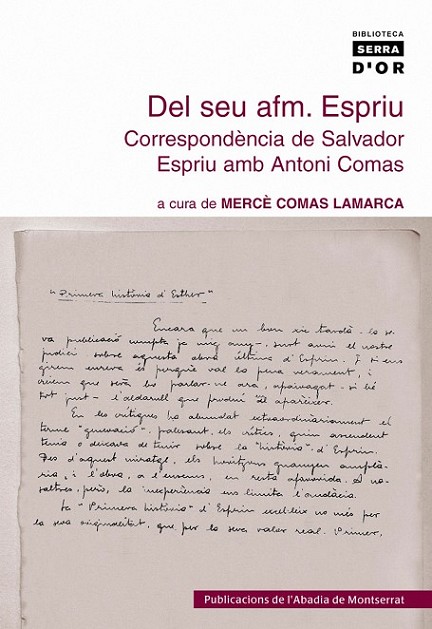 BIBLIOTECA
SERRA
D'OR
Del seu afm. Espriu
Correspondència de Salvador
Espriu amb Antoni Comas
a cura de MERCÈ COMAS LAMARCA
"Primera història d'Esther"
Encara que un bon xic tardà - la se-
va publicació compta ja mig any -, surt avui el nostre
judici sobre aquesta obra última d'Espriu. I si ens
 enrera és perquè val la pena verament, i
 que serà bo parlar-ne ara, apaivagat - si bé
tot just - l'aldarull que produí al aparèixer.
En les crítiques ha abundat extraordinàriament el
terme "generació", palesant, els crítics, quin ascendent
tenia o deixava de tenir sobre la "història" d'Espriu.
Des d'aquest miratge, els horitzons guanyen amplà-
ria, i l'obra, a l'ensems, en resta afavorida. A no-
saltres, però, la inexperiència ens limita l'audàcia.
La "Primera història" d'Espriu excel·leix no més per
la seva originalitat, que per la seva valor real. Primer,
Publicacions de l'Abadia de Montserrat